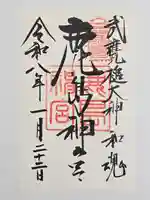 武甕槌大神 和魂
鹿島神宮
令和八年一月二十二日